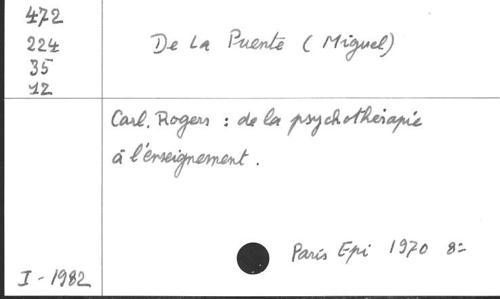 472
224
35
12
De La Puente (Miguel)
Carl. Rogers : de la psychothérapie
à l'enseignement.
Paris Epi 1970 8=
I-1982